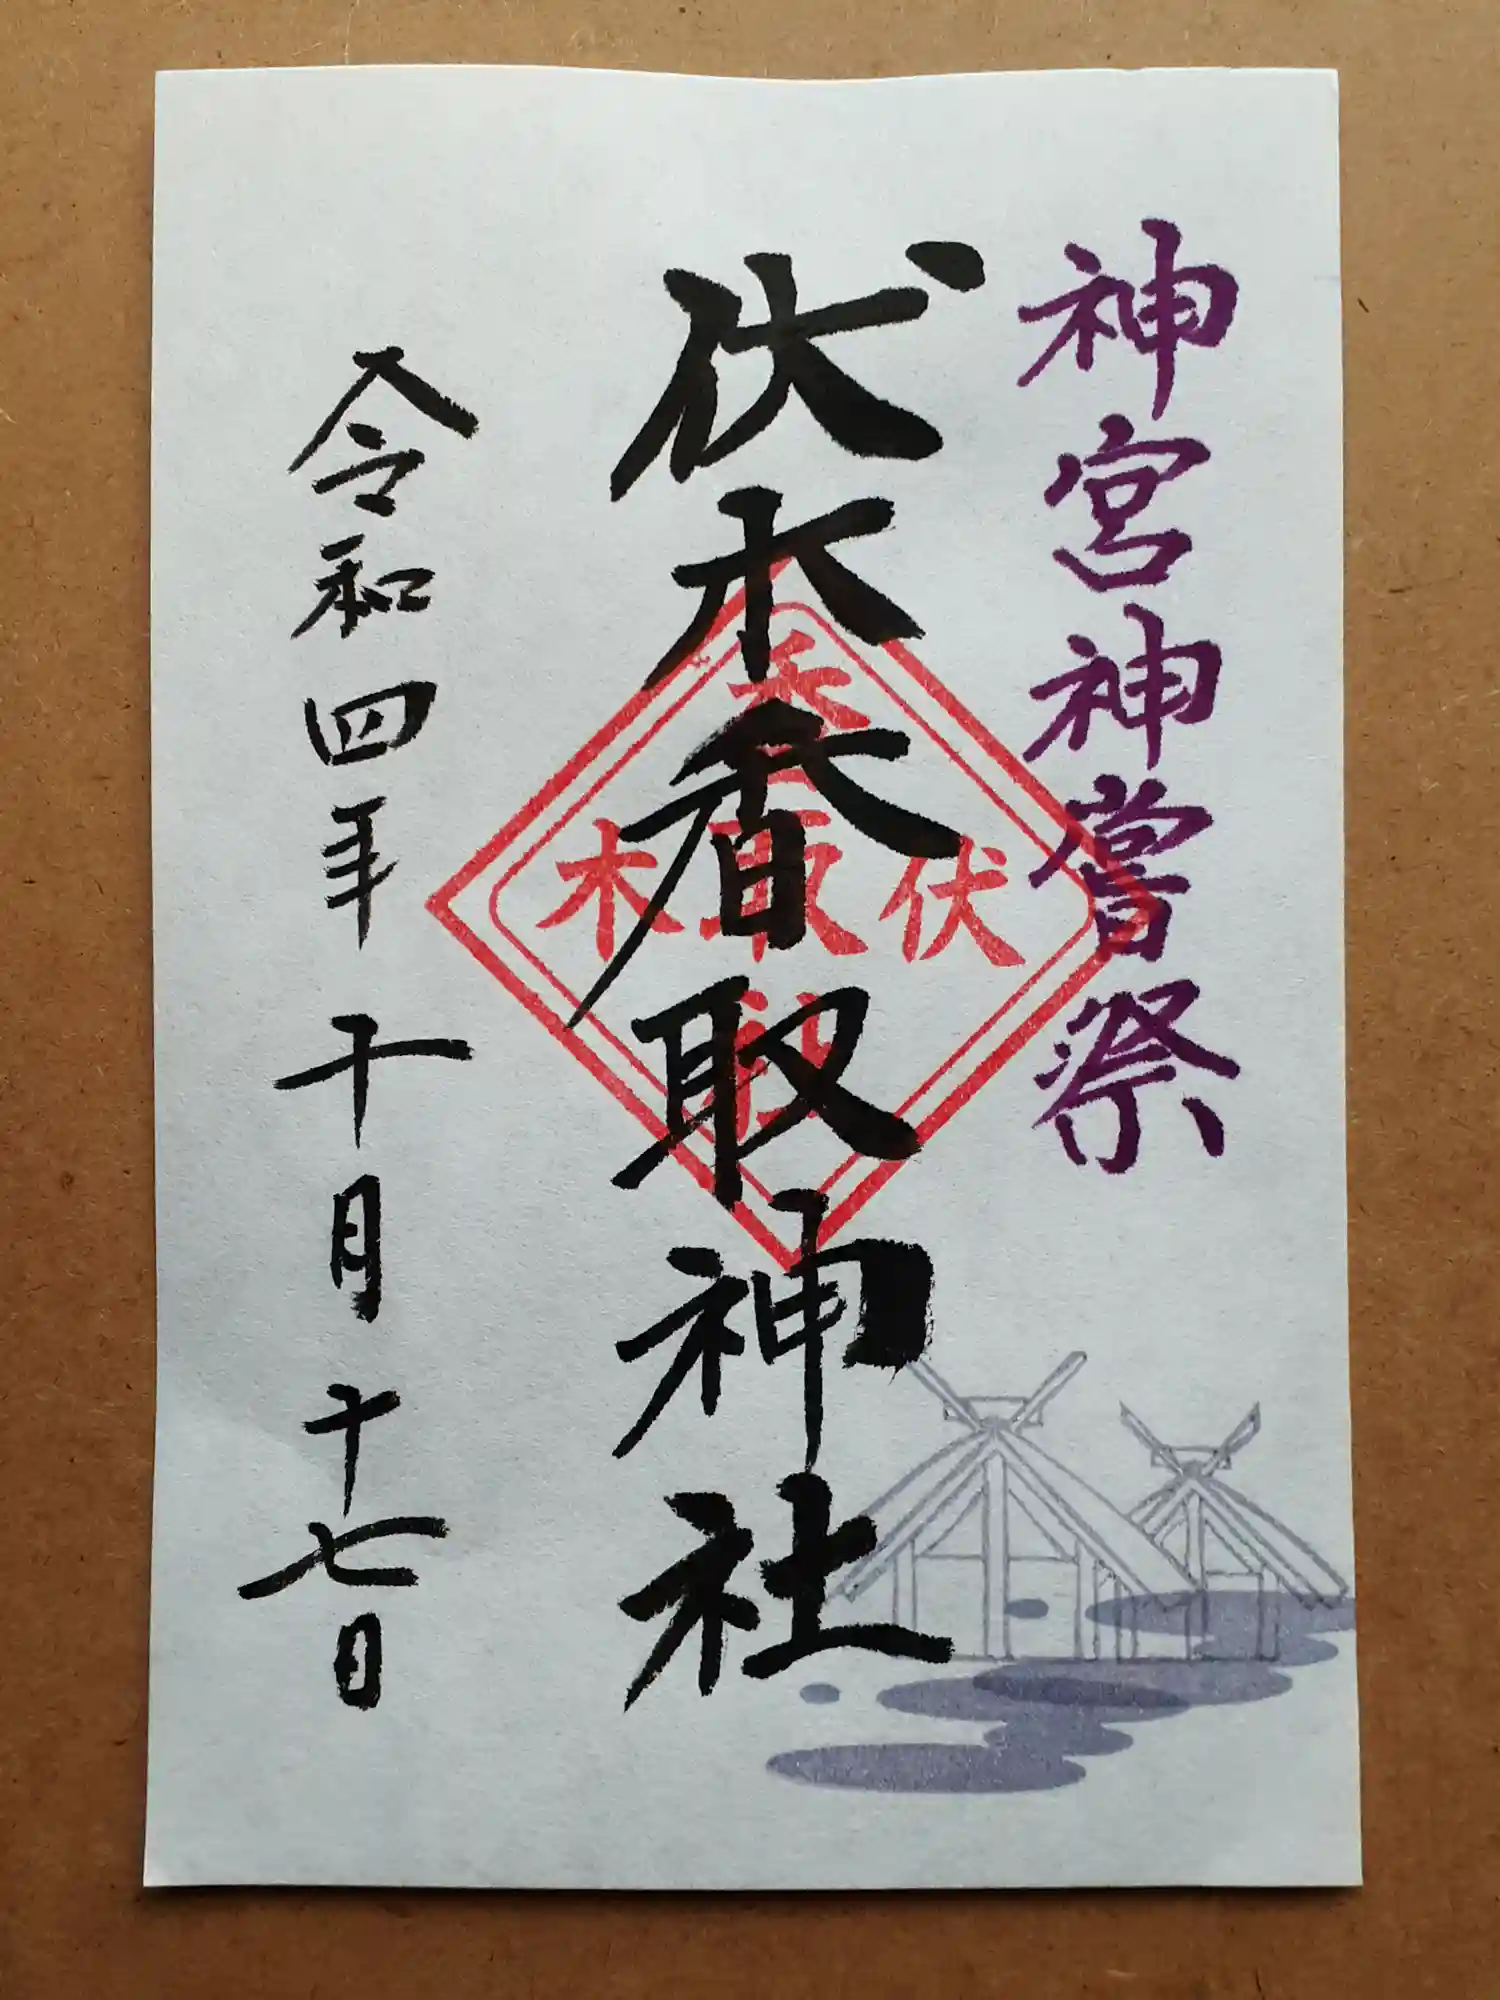 神宮神嘗祭
伏木香取神社
令和四年十月十七日
伏
香取社
木